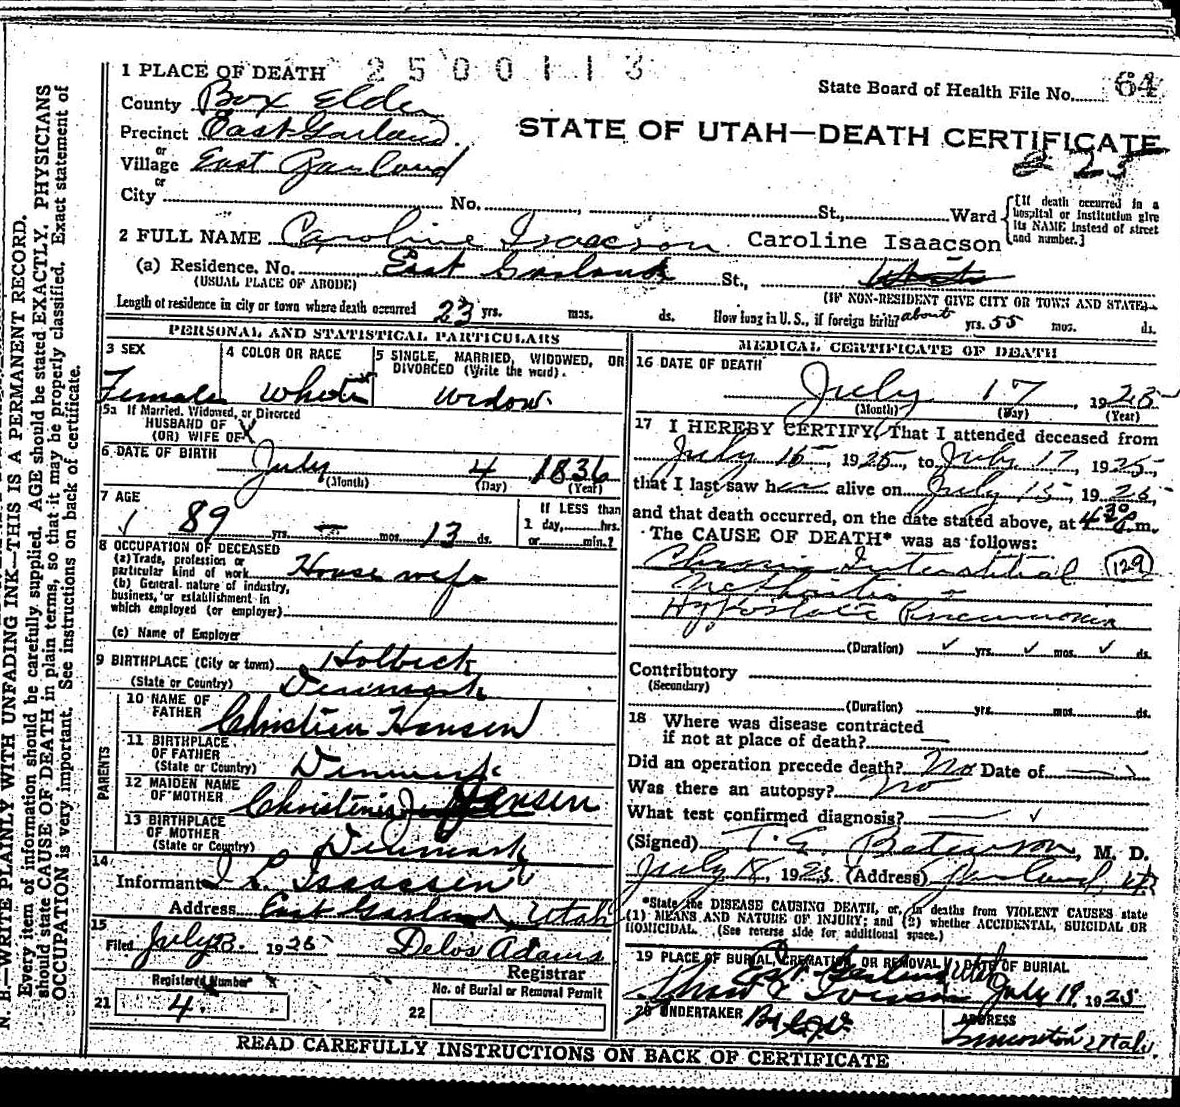 1 PLACE OF DEATH 2500113
State Board of Health File No. 64
County Box Elder
STATE OF UTAH—DEATH CERTIFICATE
Precinct East Garland
or
225
Village East Garland
or
City No. St., Ward
[If death occurred in a hospital or institution give its NAME instead of street and number.]
2 FULL NAME Caroline Isaacson Caroline Isaacson
(a) Residence. No. East Garland St.,
(USUAL PLACE OF ABODE) (IF NON-RESIDENT GIVE CITY OR TOWN AND STATE)
Length of residence in city or town where death occurred 23 yrs. mos. ds. How long in U.S., if foreign birth? about yrs. 55 mos. ds.
PERSONAL AND STATISTICAL PARTICULARS
3 SEX 4 COLOR OR RACE 5 SINGLE, MARRIED, WIDOWED, OR DIVORCED (Write the word).
Female White Widow
5a If Married, Widowed, or Divorced
HUSBAND OF
(OR) WIFE OF X
6 DATE OF BIRTH July 4 1836
(Month) (Day) (Year)
7 AGE 89 yrs. — mos. 13 ds.
If LESS than
1 day, hrs.
or min.?
8 OCCUPATION OF DECEASED
(a) Trade, profession or
particular kind of work House wife
(b) General nature of industry,
business, or establishment in
which employed (or employer)
(c) Name of Employer
9 BIRTHPLACE (City or town) Holbeck
(State or Country) Denmark
PARENTS
10 NAME OF
FATHER Christien Hansen
11 BIRTHPLACE
OF FATHER
(State or Country) Denmark
12 MAIDEN NAME
OF MOTHER Jensen
13 BIRTHPLACE
OF MOTHER
(State or Country) Denmark
14
Informant I L Isaacsen
Address East Garland, Utah
15
Filed July 1925 Delos Adams
Registrar
Registered Number
No. of Burial or Removal Permit
21 4 22
MEDICAL CERTIFICATE OF DEATH
16 DATE OF DEATH
July 17, 1925
(Month) (Day) (Year)
17 I HEREBY CERTIFY, That I attended deceased from
July 15, 1925, to July 17, 1925,
that I last saw her alive on July 15, 1925,
and that death occurred, on the date stated above, at 4 30 m.
The CAUSE OF DEATH* was as follows:
Chronic Interstitial 129
Nephritis
Hypostatic Pneumonia
(Duration) yrs. mos. ds.
Contributory
(Secondary)
(Duration) yrs. mos. ds.
18 Where was disease contracted
if not at place of death? —
Did an operation precede death? No Date of —
Was there an autopsy? No
What test confirmed diagnosis? —
(Signed) M. D.
July 18, 1925 (Address) Garland, Ut
*State the DISEASE CAUSING DEATH, or, in deaths from VIOLENT CAUSES state
(1) MEANS AND NATURE OF INJURY; and (2) whether ACCIDENTAL, SUICIDAL OR
HOMICIDAL. (See reverse side for additional space.)
19 PLACE OF BURIAL, CREMATION, OR REMOVAL DATE OF BURIAL
East Garland Utah July 19, 1925
Shaw & Iverson
20 UNDERTAKER ADDRESS
Tremonton Utah
READ CAREFULLY INSTRUCTIONS ON BACK OF CERTIFICATE
N. B.—WRITE PLAINLY WITH UNFADING INK—THIS IS A PERMANENT RECORD.
Every item of information should be carefully supplied. AGE should be stated EXACTLY. PHYSICIANS
should state CAUSE OF DEATH in plain terms, so that it may be properly classified. Exact statement of
OCCUPATION is very important. See instructions on back of certificate.